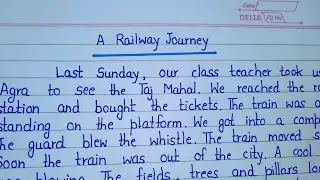 Date
DELTA Pg No
A Railway Journey
Last Sunday, our class teacher took us
Agra to see the Taj Mahal. We reached the ra
station and bought the tickets. The train was a
standing on the platform. We got into a comp
The guard blew the whistle. The train moved s
Soon the train was out of the city. A cool
was blowing. The fields, trees and pillars loo